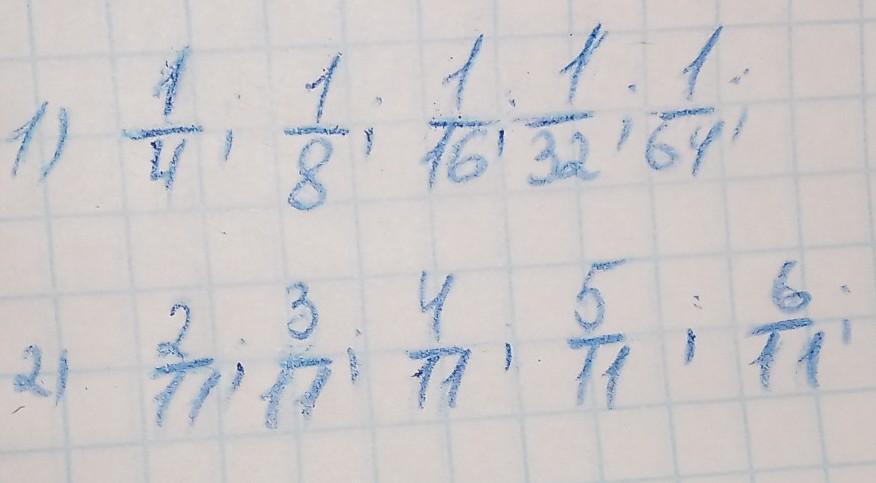 1) 1/4; 1/8; 1/16; 1/32; 1/64;
2) 2/11; 3/11; 4/11; 5/11; 6/11;